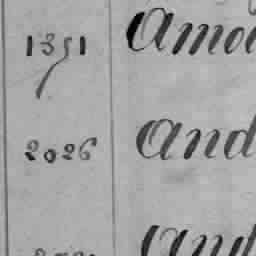 1351 Amo
2026 And
And